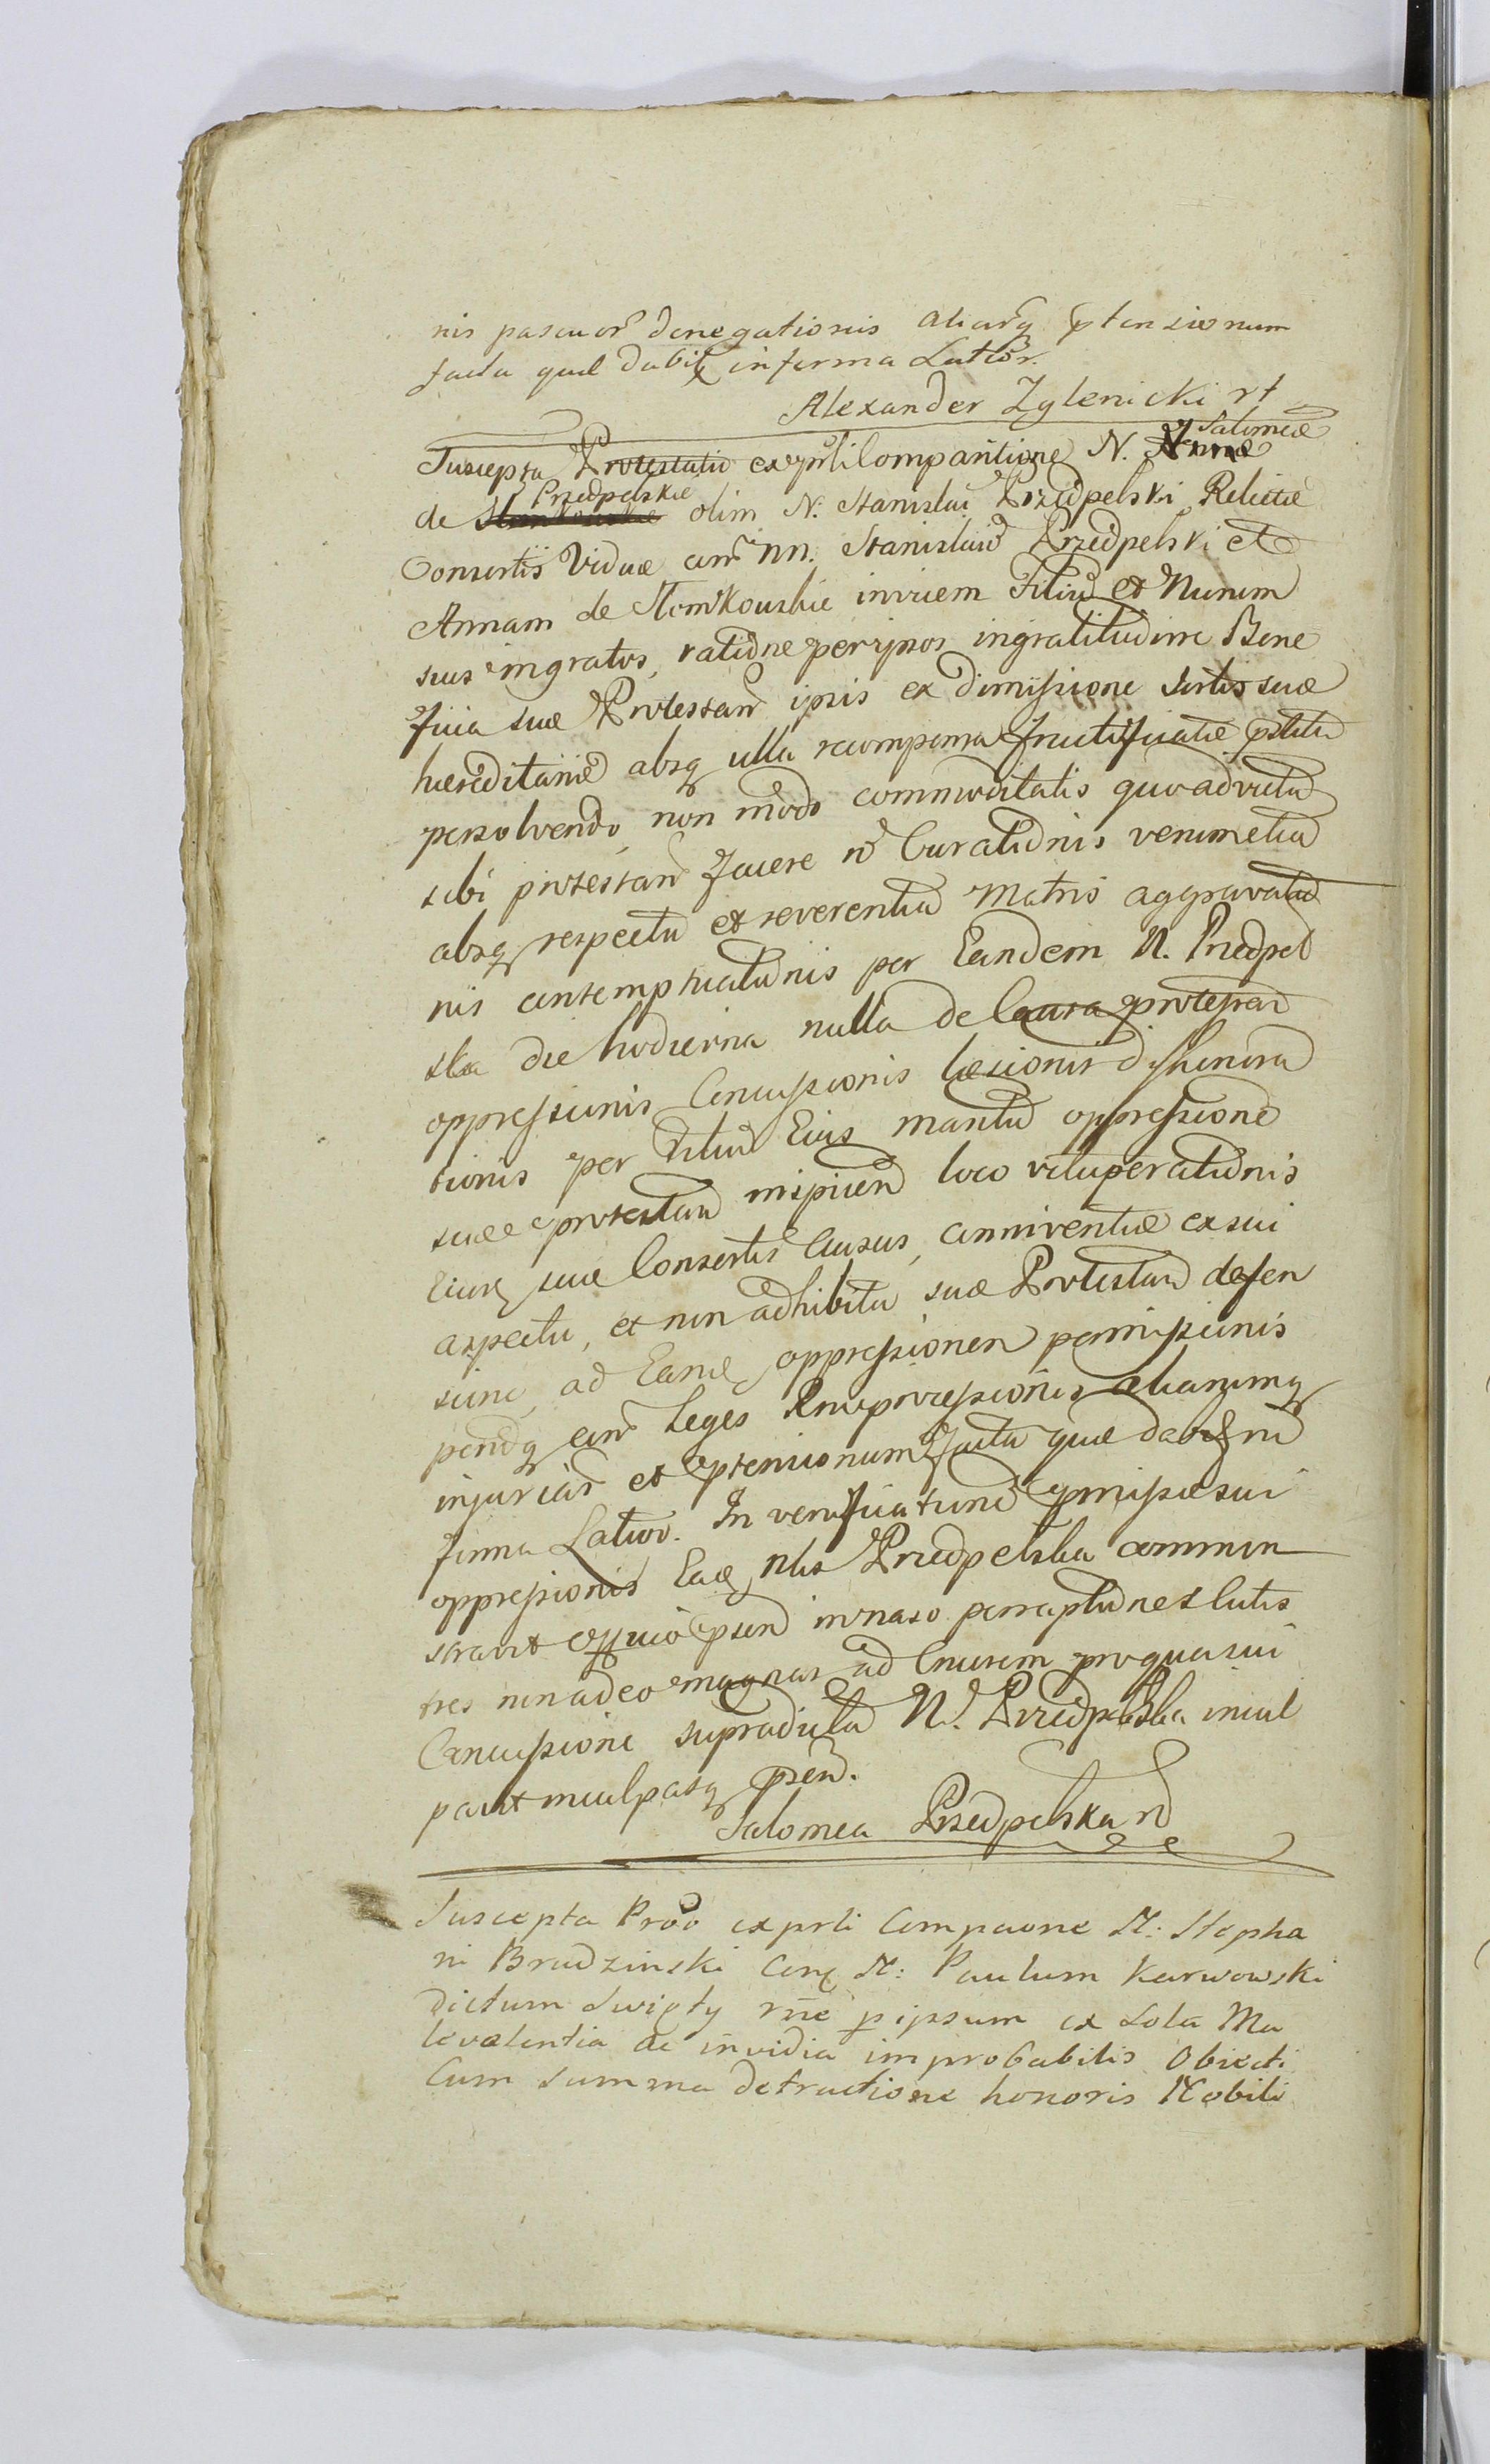 nis pascuor denegationis aliarq ptensionum
facta quæ dabit in forma Latior.
Alexander Zglenicki rt
Suscepta Protestatio ex prsli Comparitione N. Annæ Salomeæ
de Slomkouskie Przedpelskie olim N. Stanislai Przedpelski Relictæ
Consortis Viduæ con NN. Stanislaum Przedpelski et
Annam de Slomkouskie invicem Filium et Nurum
suos ingratos, ratione per ipsos ingratitudine Bene
ficia suæ Protestan ipsis ex dimissione sortis suæ
hæreditariæ absq ulla recompensa fructificatæ pstitu
persolvendo, non modo commoditatis quoad victum
sibi protestan facere Curationis verum etiam
absq respectu et reverentia Matris aggravatio
nis contemptuationis per Eandem N. Przedpel
ska die hodierna nulla de Causa protestan
oppressionis Concussionis læsionis dishonora
tionis per Filium Eius maritum oppressione
suæ protestan inspicien loco vituperationis
Eiusq suæ Consortis Causas, conniventiæ ex sui
aspectu, et non adhibita suæ Protestan defen
sione, ad Eamq oppressionem permissionis
con Leges aliarumq
injuriar et ptensionum facta quæ dabitur in
forma Latior. In verificatione pmissæ sui
oppressionis Eadq Nlis Przedpelska commun
stravit officio psen in naso
tres non adeo magnas ad Cruorem pro qua sui
Concussione supradicta N. Przedpelska incul
pavit inculpatq psen.
Salomea Przedpelska
Suscepta Pro͠o ex prsli Compaone N: Stepha
ni Brudzinski Con N: Paulum Karwowski
dictum Swięty rne p ipsum ex sola Ma
levolentia ac invidia improbabilis Obiecti
Cum summa detractione honoris Nobili